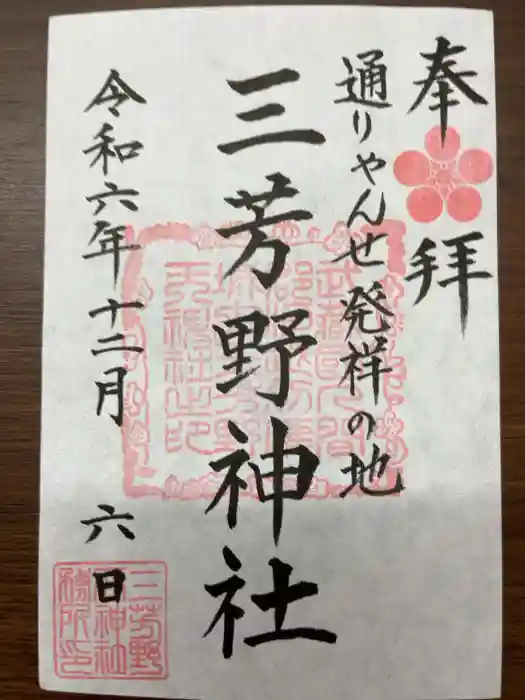 奉拝
通りゃんせ発祥の地
三芳野神社
令和六年十二月六日
三芳野
神社